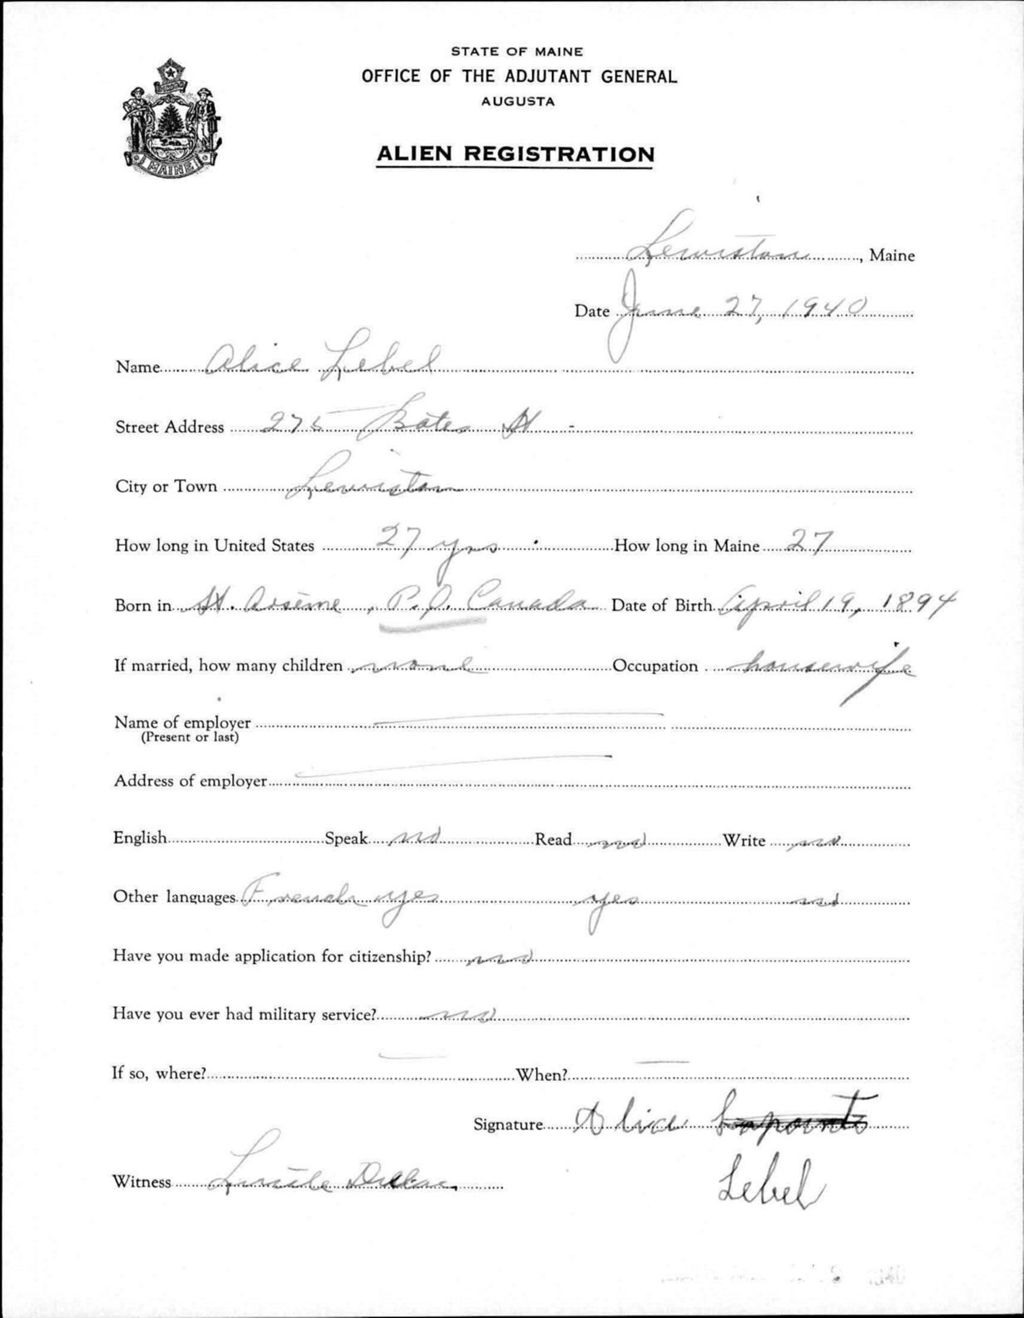 STATE OF MAINE
OFFICE OF THE ADJUTANT GENERAL
AUGUSTA
ALIEN REGISTRATION
MAINE
Lewiston, Maine
Date June 27, 1940
Name Alice Lebel
Street Address 275 Bates St
City or Town Lewiston
How long in United States 27 yrs How long in Maine 27
Born in St. Arsène, P.Q. Canada Date of Birth April 19, 1894
If married, how many children none Occupation housewife
Name of employer
(Present or last)
Address of employer
English Speak no Read no Write no
Other languages French yes yes no
Have you made application for citizenship? no
Have you ever had military service? no
If so, where? When?
Signature Alice
Lebel
Witness Lucile